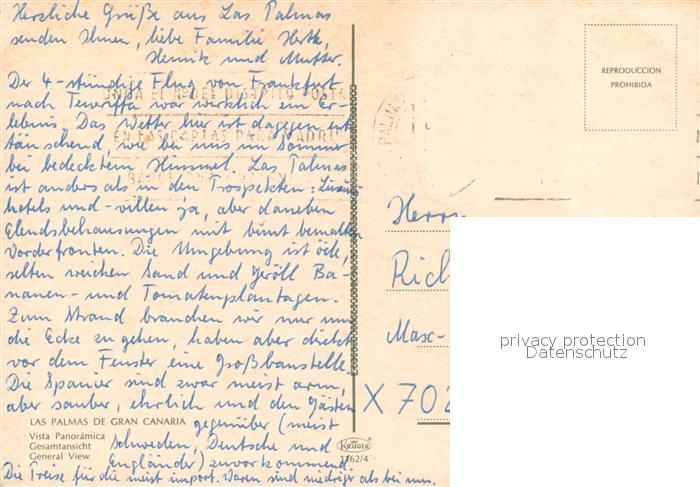 Herzliche Grüße aus Las Palmas
senden Ihnen, liebe Familie
Henrik und Mutter.
Der 4-stündige Flug von Frankfurt
nach Teneriffa war wirklich ein Er-
lebnis. Das Wetter hier ist dagegen ent
täuschend, wie bei uns im Sommer
bei bedecktem Himmel. Las Palmas
ist anders als in den Prospekten: Luxus-
hotels und -villen ja, aber daneben
Elendsbehausungen mit bunt bemalten
Vorderfronten. Die Umgebung ist öde,
selten weichen Sand und Geröll Ba-
nanen- und Tomatenplantagen.
Zum Strand brauchen wir nur um
die Ecke zu gehen, haben aber direkt
vor dem Fenster eine Großbaustelle.
Die Spanier sind zwar meist arm,
aber sauber, ehrlich und den Gästen
gegenüber (meist
Schweden, Deutsche und
Engländer) zuvorkommend.
Die Preise für die meist import. Waren sind niedriger als bei uns.
LAS PALMAS DE GRAN CANARIA
Vista Panorámica
Gesamtansicht
General View
KRÜGER
1162/4
REPRODUCCION
PROHIBIDA
Herrn
Rich
Max-
X 702
privacy protection
Datenschutz